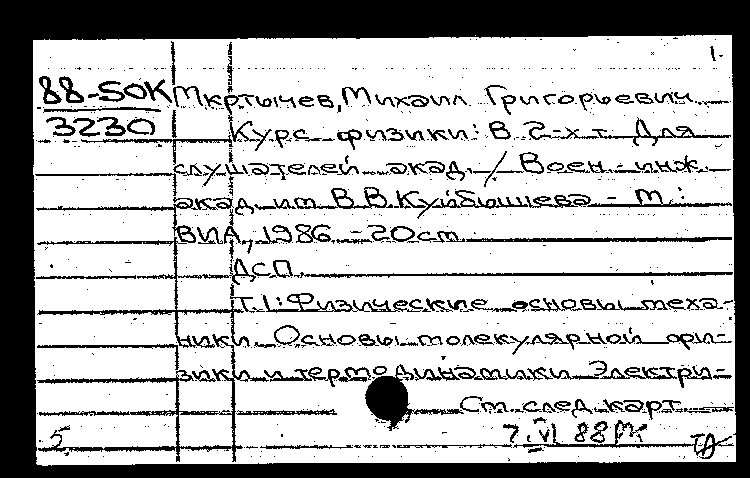 1.
88-5OK Мкртычев, Михаил Григорьевич
3230 Курс физики: В 2-х т. Для
слушателей акад. / Воен.-инж.
акад. им. В.В. Куйбышева - М.:
ВИА, 1986 - 20 см.
ДСП.
Т.1: Физические основы меха-
ники. Основы молекулярной фи-
зики и термодинамики. Электри-
См. след. карт.
5. 7.VI 88